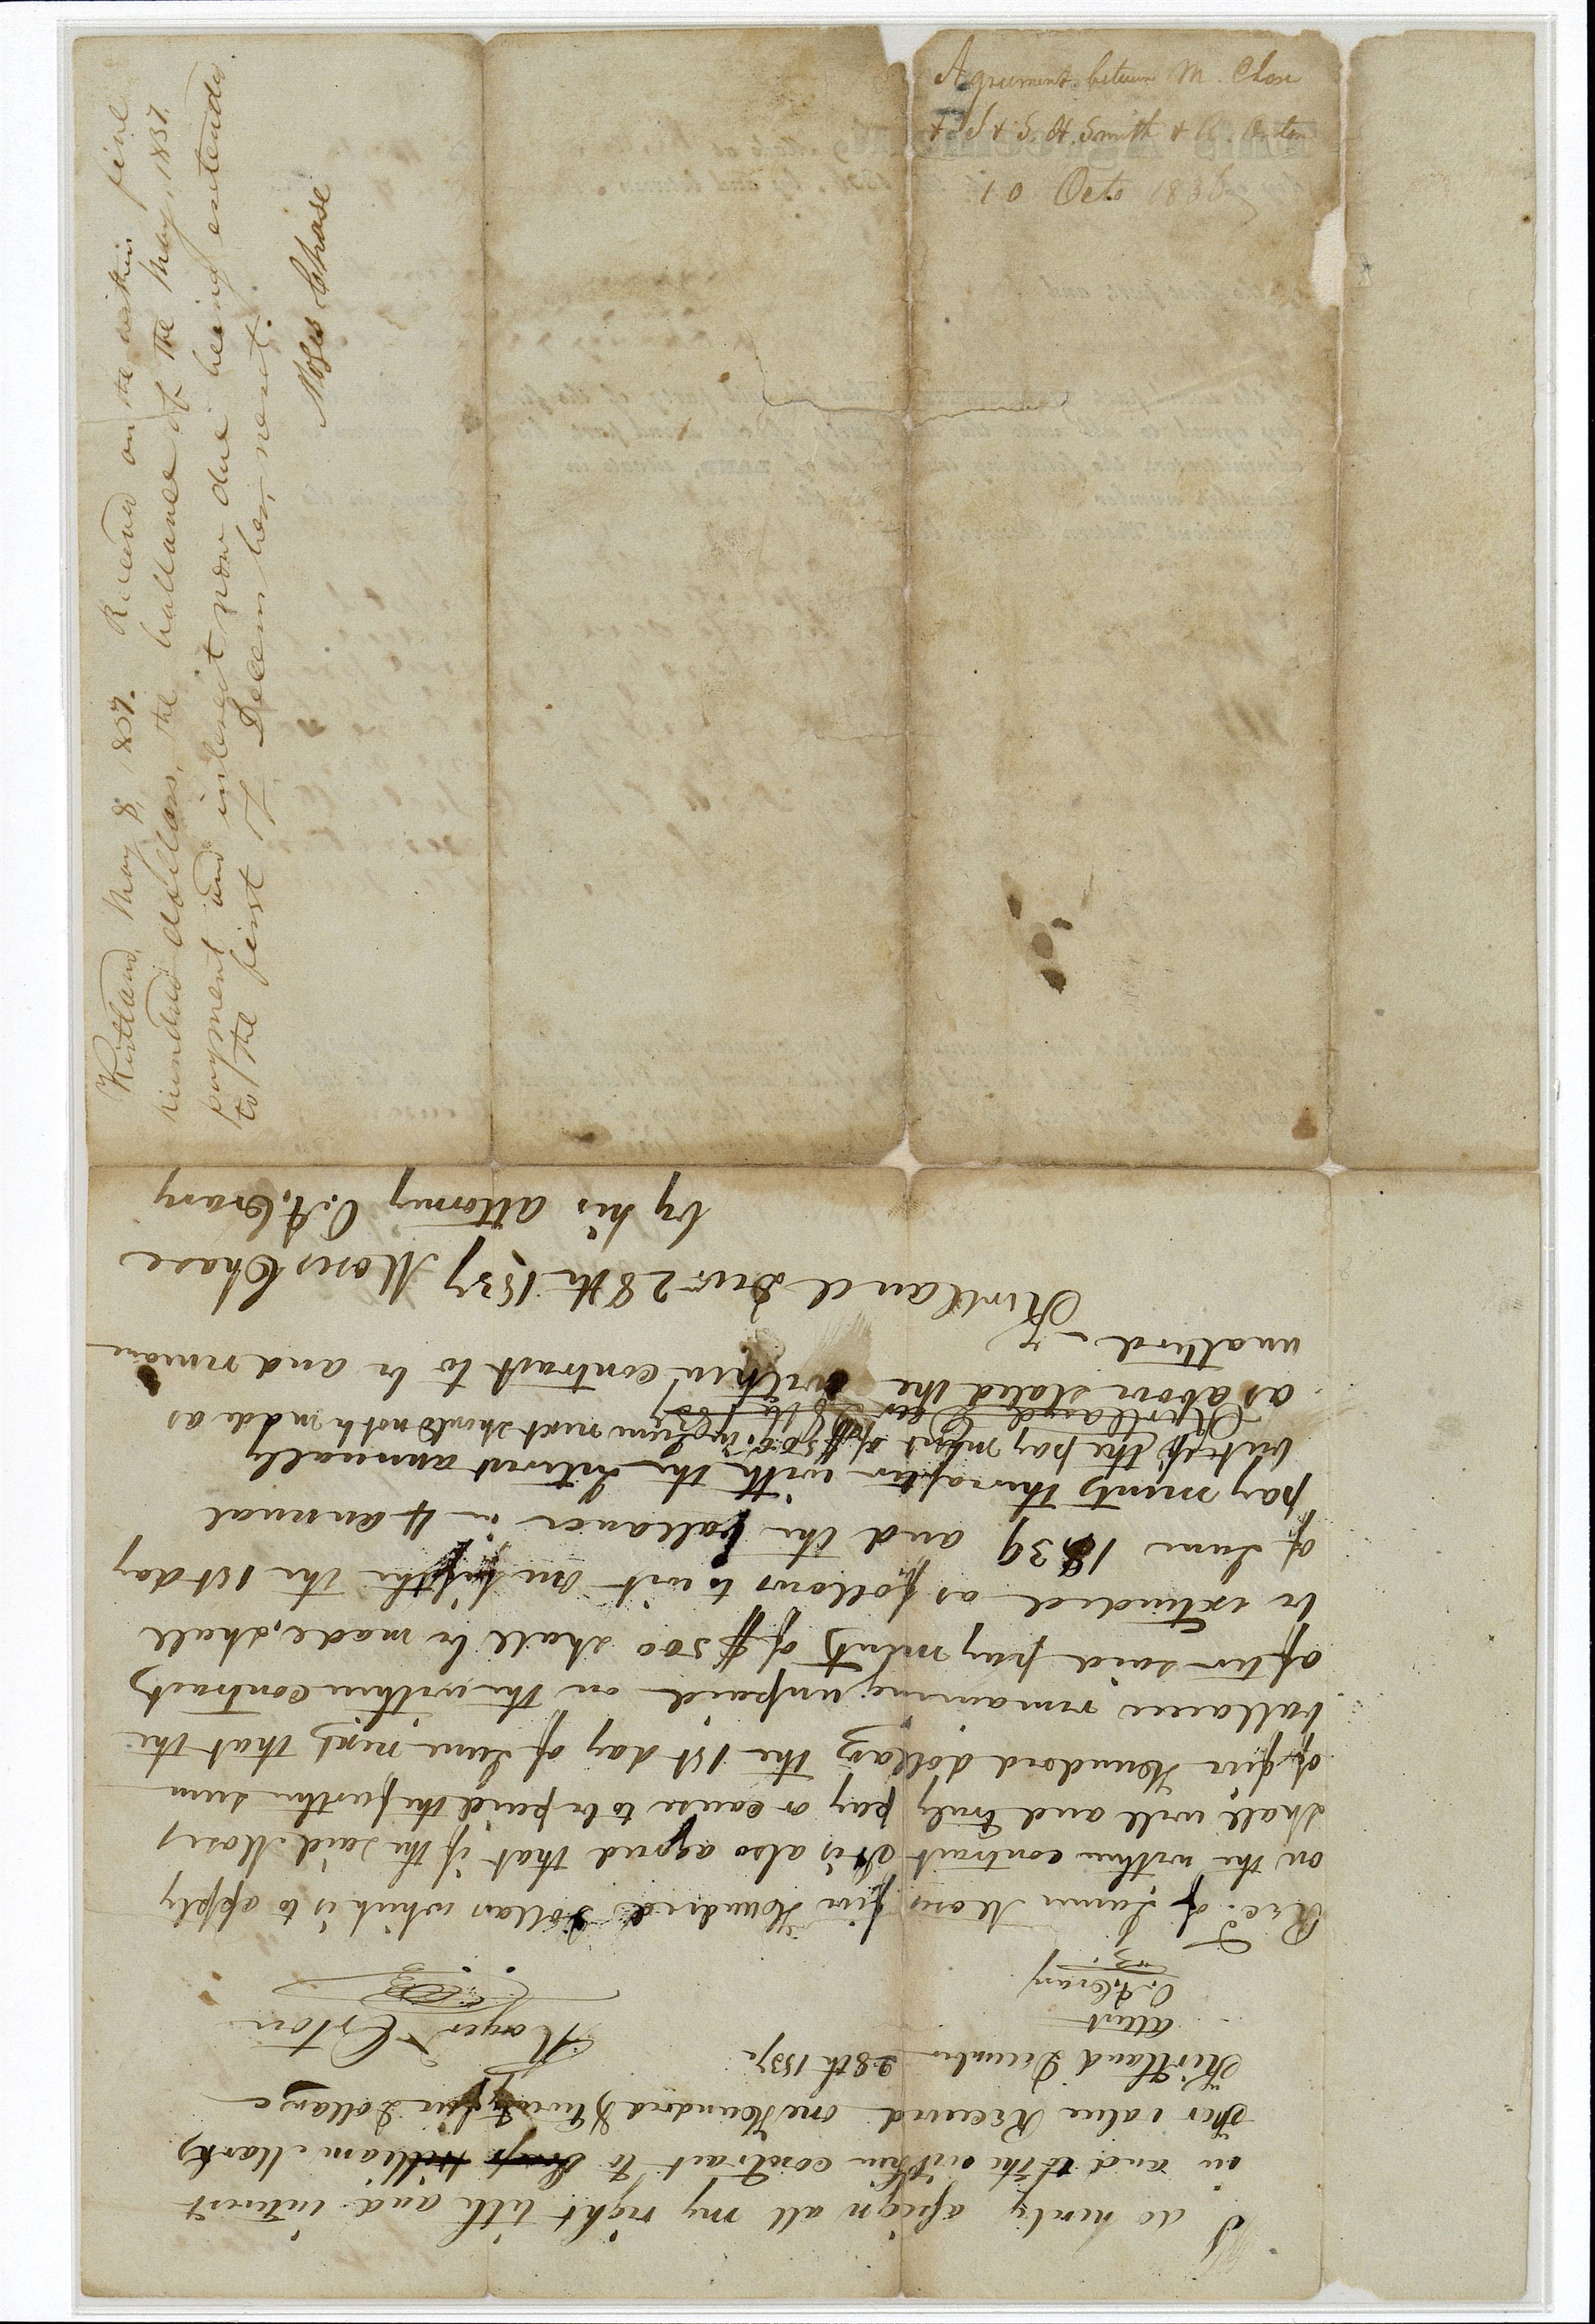 Agreement between M. Chase
& J & S. H. Smith & R. Orton
10 Octo 1836
Kirtland May 8, 1837. Received on the within five
hundred dollars, the ballance of the May, 1837.
payment and interest now due being extended
to the first of December, next.
Moses Chase
I do herely assign all my right title and interest
in and to the within contract to William Marks
For value Received one Hundred & twenty five Dollars
Kirtland December 28th 1837
Roger Orton
attest
O. A. Crary
Rec.d of James Moses five Hundred Dollars which is to apply
on the within contract It is also agreed that if the said Moses
shall well and truly pay or cause to be paid the further sum
of five Hundred dollars the 1st day of June next, that the
ballance remaining unpaid on the within contract
after said payment of $500 shall be made, shall
be extended as follows to wit one fifth the 1st day
of June 1839 and the ballance in 4 annual
payments thereafter with the interest annually
but if the payment of $500 in June next should not be made as
Kirtland Dec 28th 1837
as above stated the within contract to be and remain
unalterd
Kirtland Decr 28th 1837 Moses Chase
by his attorney O. A. Crary